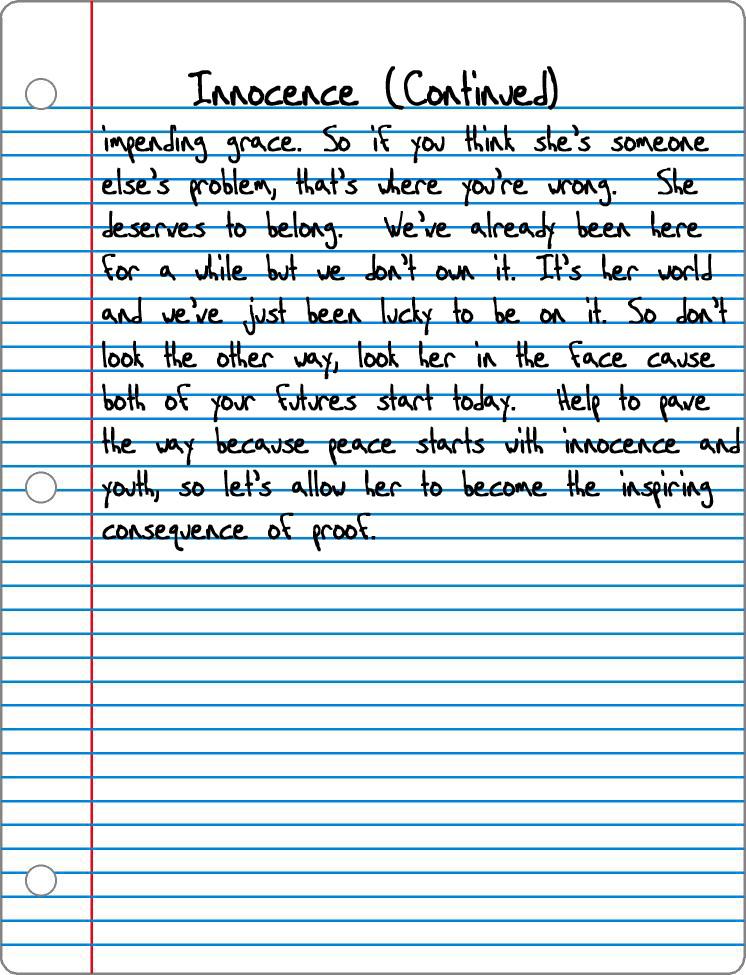 Innocence (Continued)
impending grace. So if you think she's someone
else's problem, that's where you're wrong. She
deserves to belong. We've already been here
for a while but we don't own it. It's her world
and we've just been lucky to be on it. So don't
look the other way, look her in the face cause
both of your futures start today. Help to pave
the way because peace starts with innocence and
youth, so let's allow her to become the inspiring
consequence of proof.